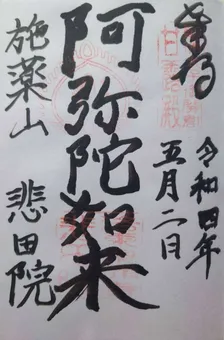 奉拝
令和四年
五月二日
阿弥陀如来
施薬山
悲田院